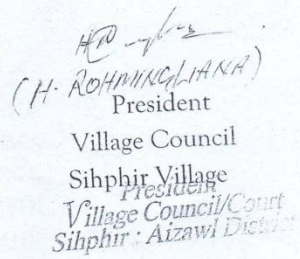 (H. ROHMINGLIANA)
President
Village Council
Sihphir Village
President
Village Council/Court
Sihphir : Aizawl District